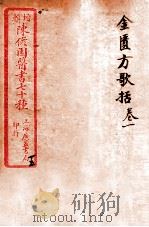 金匱方歌括 卷一
增輯
陳修園醫書七十種
上海
印行